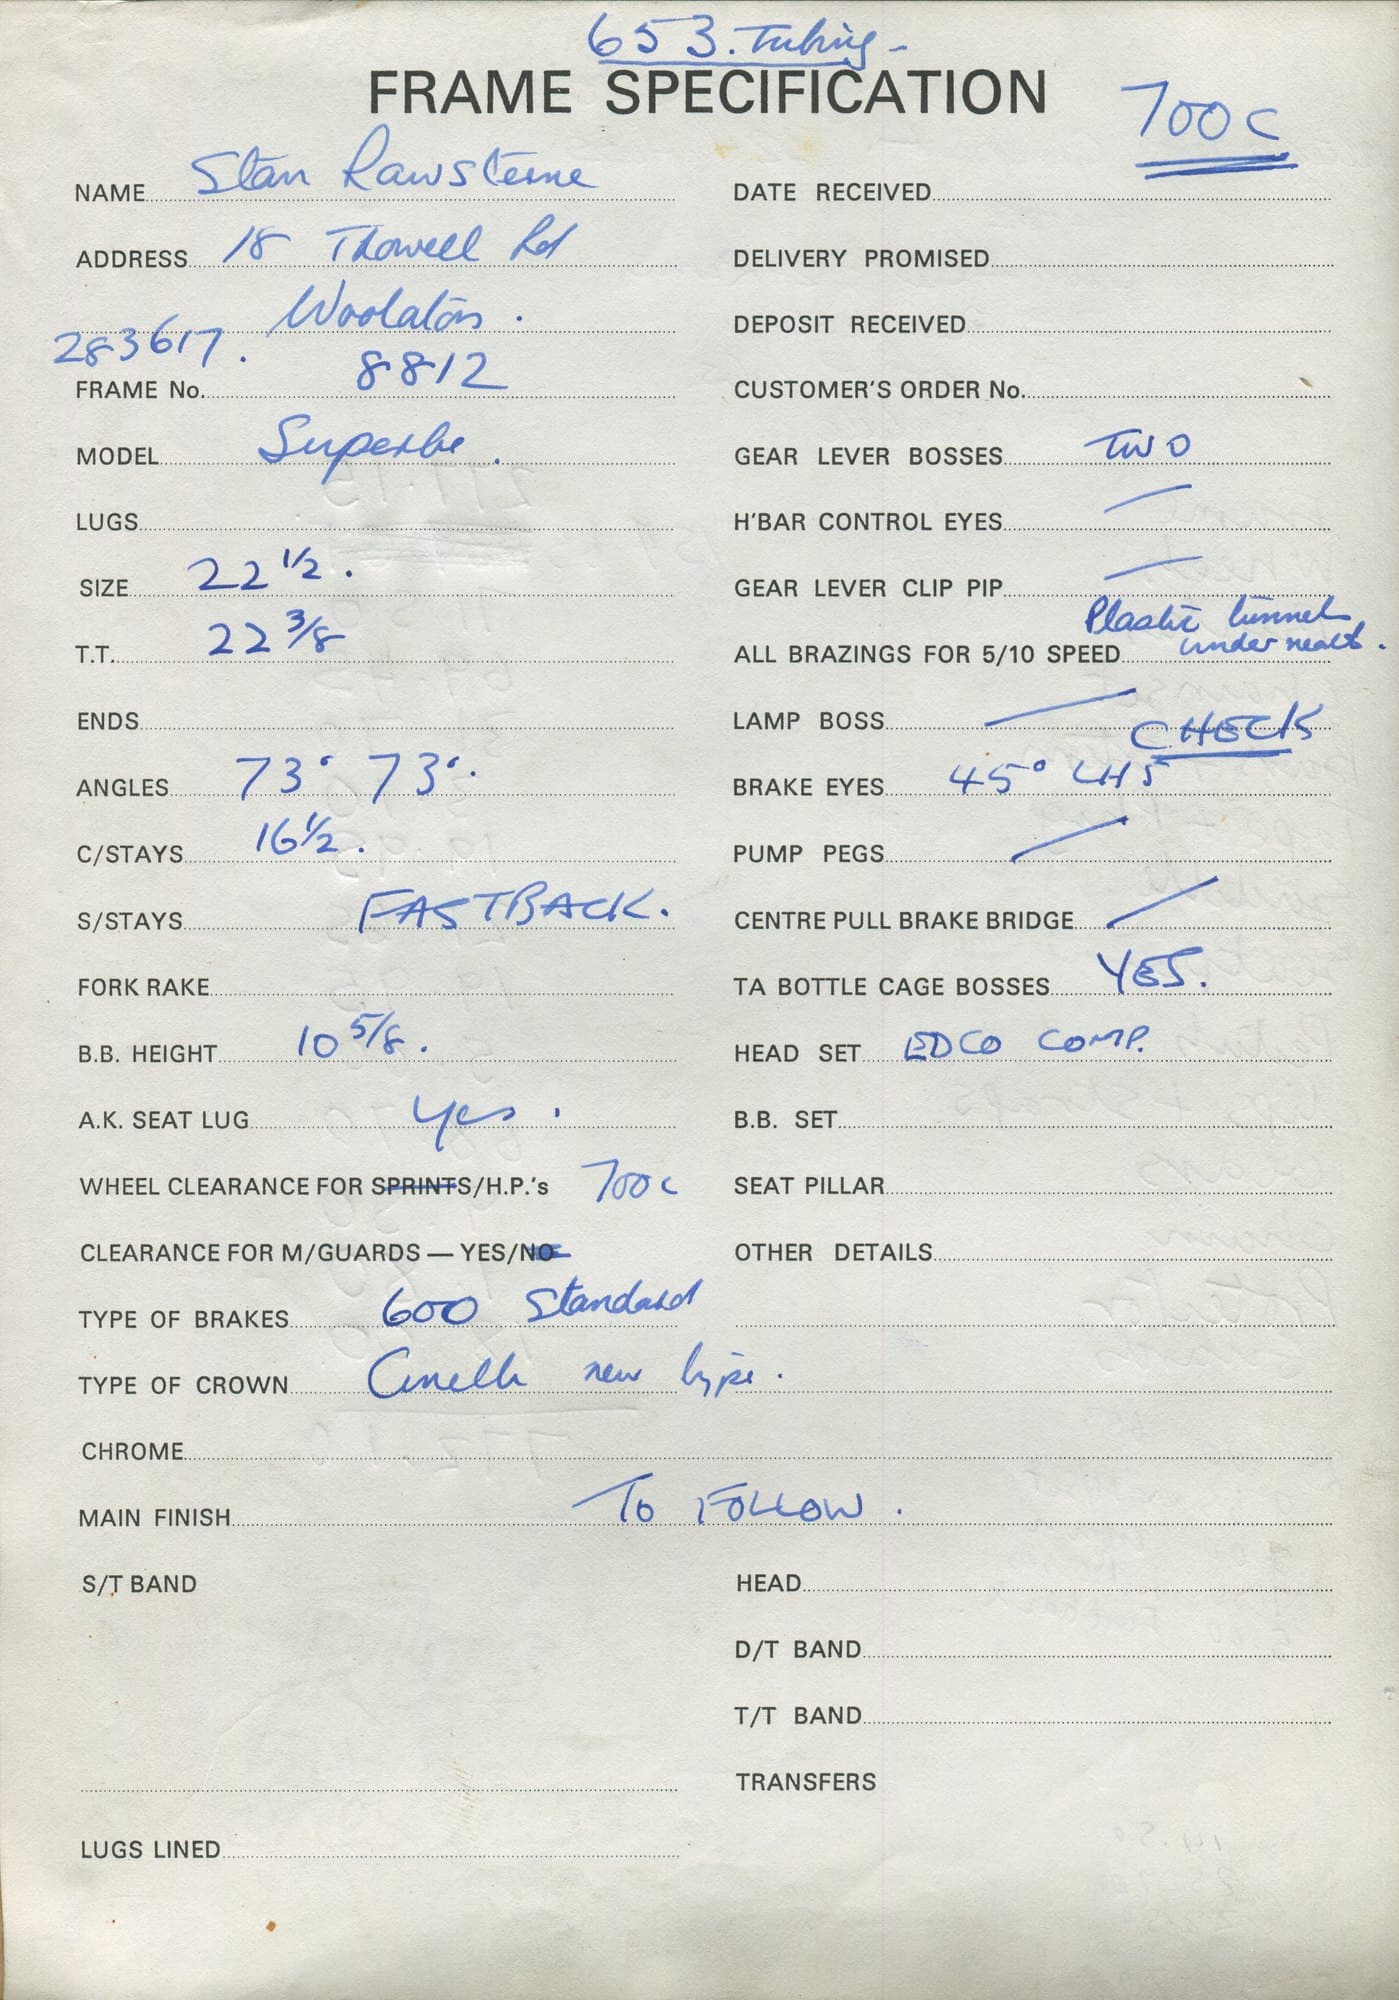 653. Tubing -
FRAME SPECIFICATION
700c
NAME Stan Rawsterne
ADDRESS 18 Thowell Rd
Woolaton.
283617.
FRAME No. 8812
MODEL Superbe.
LUGS
SIZE 22 1/2.
T.T. 22 3/8
ENDS
ANGLES 73° 73°.
C/STAYS 16 1/2.
S/STAYS FASTBACK.
FORK RAKE
B.B. HEIGHT 10 5/8.
A.K. SEAT LUG Yes.
WHEEL CLEARANCE FOR SPRINTS/H.P.'s 700c
CLEARANCE FOR M/GUARDS — YES/NO
TYPE OF BRAKES 600 Standard
TYPE OF CROWN Cinelli new type.
CHROME
MAIN FINISH TO FOLLOW.
S/T BAND
LUGS LINED
DATE RECEIVED
DELIVERY PROMISED
DEPOSIT RECEIVED
CUSTOMER'S ORDER No.
GEAR LEVER BOSSES TWO
H'BAR CONTROL EYES —
GEAR LEVER CLIP PIP —
Plastic tunnel
ALL BRAZINGS FOR 5/10 SPEED underneath.
LAMP BOSS —
CHECK
BRAKE EYES 45° LHS
PUMP PEGS —
CENTRE PULL BRAKE BRIDGE —
TA BOTTLE CAGE BOSSES YES.
HEAD SET EDCO COMP.
B.B. SET
SEAT PILLAR
OTHER DETAILS
HEAD
D/T BAND
T/T BAND
TRANSFERS